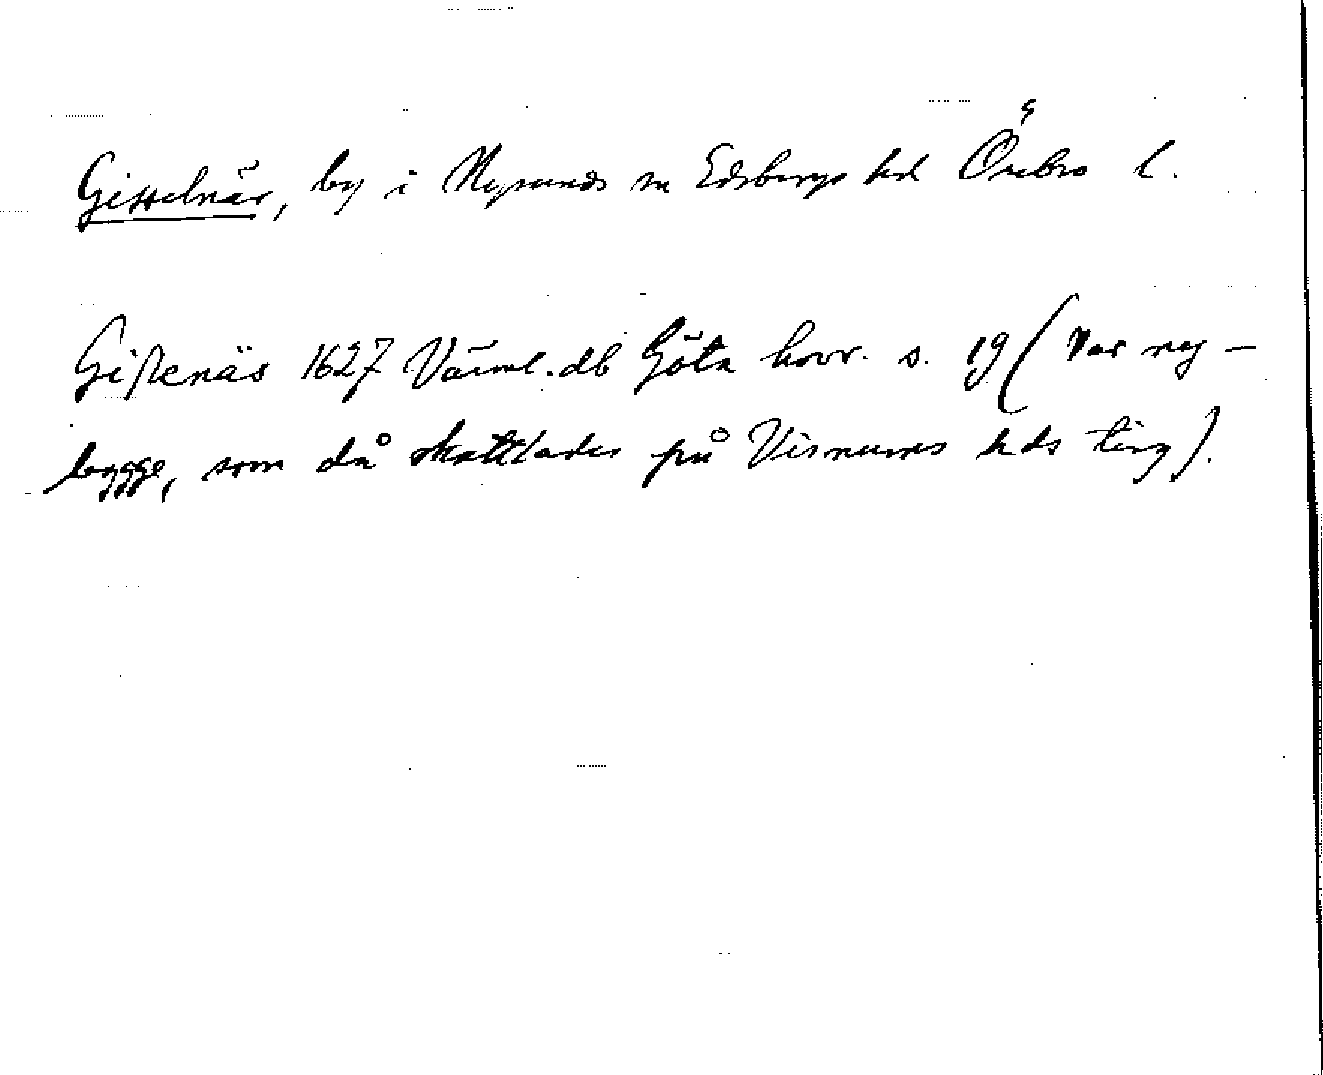 Gisselnäs, by i Nysunds sn Edsbergs hd Örebro l.
Gißenäs 1627 Värml. db Göta hovr. s. 19 (Var ny-
bygge, som då skattlades på Visnums hds ting).